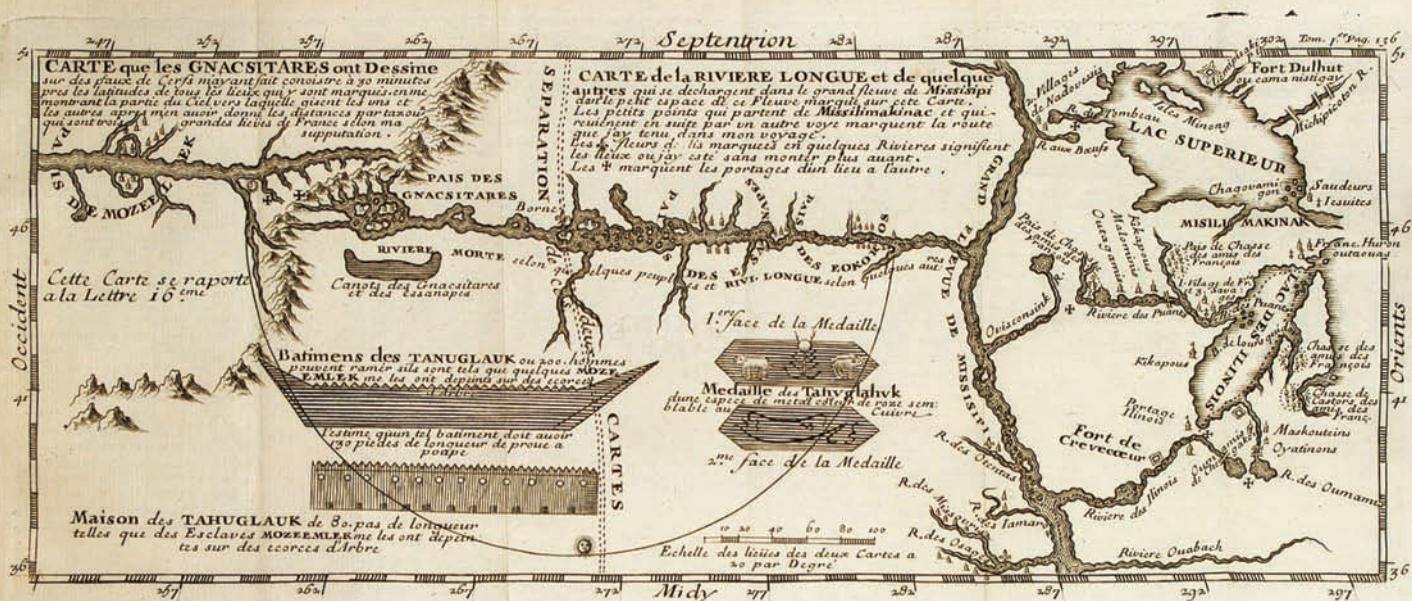 Tom. 1.er Pag. 136
247 252 257 262 267 272 Septentrion 282 287 292 297 302
51
51
CARTE que les GNACSITARES ont Dessine
sur des paux de Cerfs mayant fait conoistre a 30 minutes
pres les latitudes de tous les lieux qui y sont marqués, en me
montrant la partie du Ciel vers laquelle gisent les uns et
les autres apres men avoir donné les distances par tazous
qui sont trois grandes lieües de France selon ma
supputation.
SEPARATION
des deux
CARTES
CARTE de la RIVIERE LONGUE et de quelque
autres qui se dechargent dans le grand fleuve de Missisipi
dan le petit espace de ce Fleuve marqué sur cete Carte.
Les petits points qui partent de Missilimakinac et qui
reviennent en suite par un autre voye marquent la route
que jay tenu dans mon voyage.
Les fleurs d. lis marquees en quelques Rivieres signifient
les lieux ou jay esté sans monter plus avant.
Les ✠ marquent les portages dun lieu a l'autre.
PAIS DE MOZEEMLEK
PAIS DES
GNACSITARES
Borne
RIVIERE MORTE selon quelques peuples et RIVI. LONGUE selon quelques autres
Canots des Gnacsitares
et des essanapes
PAIS DES ESSANAPES
PAIS DES EOKOROS
Cette Carte se raporte
a la Lettre 16eme
46
46
Occident
Orients
41
41
36
36
Batimens des TANUGLAUK ou 200. hommes
pouvent ramer sils sont tels que quelques MOZE
EMLEK me les ont depeints sur des ecorces
d'Arbre
J'estime qu'un tel batiment doit avoir
130 pieds de longueur de proue a
poupe
Maison des TAHUGLAUK de 80. pas de longueur
telles que des Esclaves MOZEEMLEK me les ont depein
tes sur des ecorces d'Arbre
1.ere face de la Medaille
Medaille des Tahuglahuk
dune espece de metal couleur de roze sem
blable au Cuivre
2.me face de la Medaille
10 20 40 60 80 100
Echelle des lieües des deux Cartes a
20 par Degré
GRAND FLEVUE DE MISSISIPI
Villages
de Nadovessis
R. du Tombeau
R. aux Bœufs
Isles Minong
LAC SUPERIEUR
Fort Dulhut
ou cama nistigay
Michipicoton R.
Chagouami
gon
Saudeurs
Iesuites
MISILIMAKINAK
Franc. Huron
outaouas
Pais de Chasse
des amis des
françois
Kikapous
Malominis
Outagamis
Pais de Chasse
des amis des
François
Riviere des Puants
B. de lours qui
LAC DE ILINOIS
Ovisconsink R.
Kikapous
Chasse des
amis des
François
Chasse de
Castors des
amis des
Franç.
Portage
Ilinois
Fort de
Crevecœur
Maskouteins
Oyatinons
R. des Oumamis
R. des Otentas
Riviere des Ilinois
R. des Missouris
R. des Osages
Riviere Ouabach
257 262 267 272 Midy 277 282 287 292 297